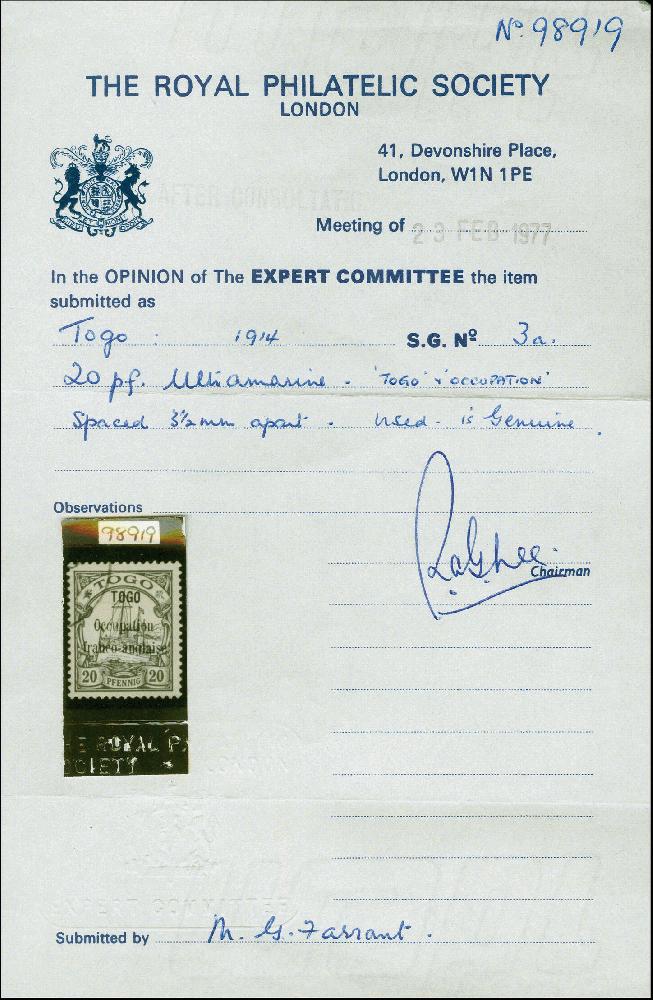 Nº 98919
THE ROYAL PHILATELIC SOCIETY
LONDON
41, Devonshire Place,
London, W1N 1PE
AFTER CONSULTATION
Meeting of 23 FEB 1977
In the OPINION of The EXPERT COMMITTEE the item
submitted as
Togo : 1914 S.G. Nº 3a.
20 pf. Ultramarine - 'TOGO' & 'OCCUPATION'
Spaced 3½mm apart - used - is Genuine.
Observations
98919
TOGO
TOGO
Occupation
franco-anglaise
20 PFENNIG 20
E ROYAL P
OCIETY
Chairman
EXPERT COMMITTEE
Submitted by M. G. Farrant.